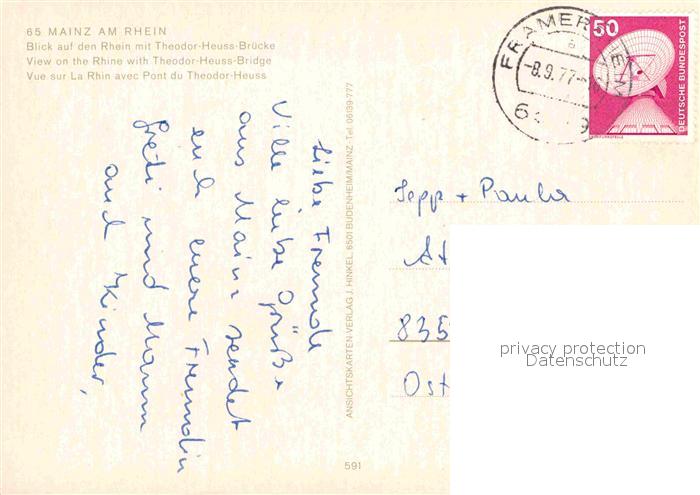 65 MAINZ AM RHEIN
Blick auf den Rhein mit Theodor-Heuss-Brücke
View on the Rhine with Theodor-Heuss-Bridge
Vue sur La Rhin avec Pont du Theodor-Heuss
Liebe Freunde
Viele liebe Grüße
aus Mainz sendet
euch euere Freundin
und Mann
und Kinder,
ANSICHTSKARTEN-VERLAG J. HINKEL, 6501 BUDENHEIM/MAINZ · Tel. 06139-777
591
FRAMERSHEIM
-8.9.77
50
DEUTSCHE BUNDESPOST
Sepp + Paula
835
Ost
privacy protection
Datenschutz